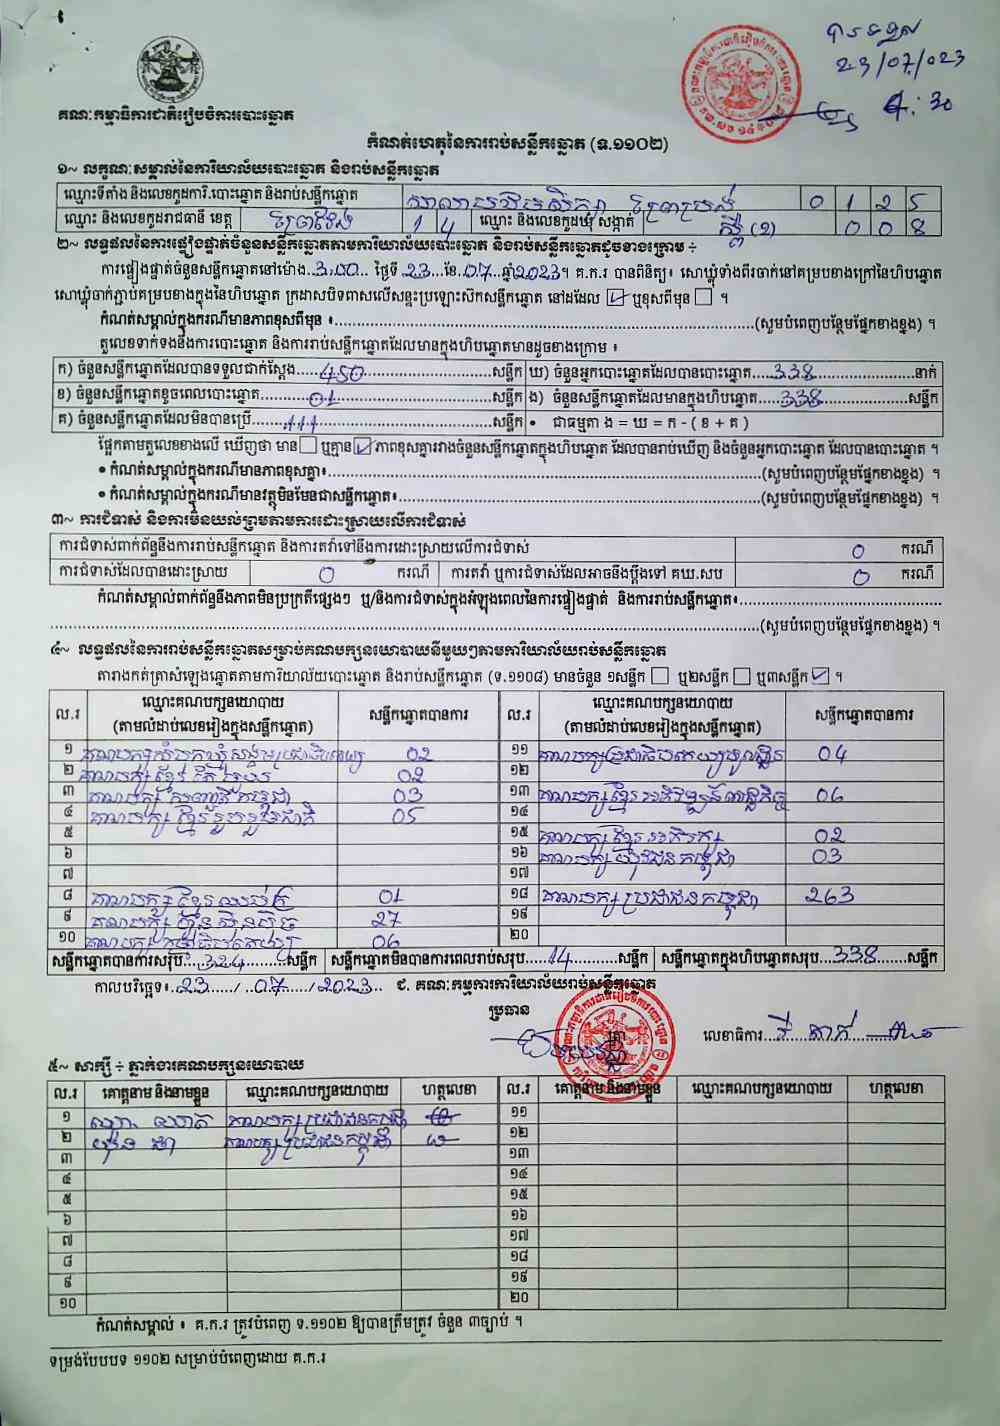 បានទទួល
23/07/023
4:30
គណៈកម្មាធិការជាតិរៀបចំការបោះឆ្នោត
កំណត់ហេតុនៃការរាប់សន្លឹកឆ្នោត (ទ.១១០២)
១~ លក្ខណៈសម្គាល់នៃការិយាល័យបោះឆ្នោត និងរាប់សន្លឹកឆ្នោត
ឈ្មោះទីតាំង និងលេខកូដការិ.បោះឆ្នោត និងរាប់សន្លឹកឆ្នោត 0 1 2 5
ឈ្មោះ និងលេខកូដរាជធានី ខេត្ត ព្រៃវែង 1 4 ឈ្មោះ និងលេខកូដឃុំ សង្កាត់ (2) 0 0 8
២~ លទ្ធផលនៃការផ្ទៀងផ្ទាត់ចំនួនសន្លឹកឆ្នោតតាមការិយាល័យបោះឆ្នោត និងរាប់សន្លឹកឆ្នោតដូចខាងក្រោម ÷
ការផ្ទៀងផ្ទាត់ចំនួនសន្លឹកឆ្នោតនៅម៉ោង 3:00 ថ្ងៃទី 23 ខែ 07 ឆ្នាំ 2023។ គ.ក.រ បានពិនិត្យ៖ សោឃ្លុំទាំងពីរចាក់នៅគម្របខាងក្រៅនៃហិបឆ្នោត
សោឃ្លុំចាក់ភ្ជាប់គម្របខាងក្នុងនៃហិបឆ្នោត ក្រដាសបិទពាសលើសន្ទះប្រឡោះស៊កសន្លឹកឆ្នោត នៅដដែល ☑ ឬខុសពីមុន ☐ ។
កំណត់សម្គាល់ក្នុងករណីមានភាពខុសពីមុន ៖ (សូមបំពេញបន្ថែមផ្នែកខាងខ្នង) ។
តួលេខទាក់ទងនឹងការបោះឆ្នោត និងការរាប់សន្លឹកឆ្នោតដែលមានក្នុងហិបឆ្នោតមានដូចខាងក្រោម ៖
ក) ចំនួនសន្លឹកឆ្នោតដែលបានទទួលជាក់ស្តែង 450 សន្លឹក ឃ) ចំនួនអ្នកបោះឆ្នោតដែលបានបោះឆ្នោត 338 នាក់
ខ) ចំនួនសន្លឹកឆ្នោតខូចពេលបោះឆ្នោត 01 សន្លឹក ង) ចំនួនសន្លឹកឆ្នោតដែលមានក្នុងហិបឆ្នោត 338 សន្លឹក
គ) ចំនួនសន្លឹកឆ្នោតដែលមិនបានប្រើ 111 សន្លឹក • ជាធម្មតា ង = ឃ = ក - ( ខ + គ )
ផ្អែកតាមតួលេខខាងលើ ឃើញថា មាន ☐ ឬគ្មាន ☑ ភាពខុសគ្នារវាងចំនួនសន្លឹកឆ្នោតក្នុងហិបឆ្នោត ដែលបានរាប់ឃើញ និងចំនួនអ្នកបោះឆ្នោត ដែលបានបោះឆ្នោត ។
• កំណត់សម្គាល់ក្នុងករណីមានភាពខុសគ្នា៖ (សូមបំពេញបន្ថែមផ្នែកខាងខ្នង) ។
• កំណត់សម្គាល់ក្នុងករណីមានវត្ថុមិនមែនជាសន្លឹកឆ្នោត៖ (សូមបំពេញបន្ថែមផ្នែកខាងខ្នង) ។
៣~ ការជំទាស់ និងការមិនយល់ព្រមតាមការដោះស្រាយលើការជំទាស់
ការជំទាស់ពាក់ព័ន្ធនឹងការរាប់សន្លឹកឆ្នោត និងការតវ៉ាទៅនឹងការដោះស្រាយលើការជំទាស់ 0 ករណី
ការជំទាស់ដែលបានដោះស្រាយ 0 ករណី ការតវ៉ា ឬការជំទាស់ដែលអាចនឹងប្តឹងទៅ គឃ.សប 0 ករណី
កំណត់សម្គាល់ពាក់ព័ន្ធនឹងភាពមិនប្រក្រតីផ្សេងៗ ឬ/និងការជំទាស់ក្នុងអំឡុងពេលនៃការផ្ទៀងផ្ទាត់ និងការរាប់សន្លឹកឆ្នោត៖
(សូមបំពេញបន្ថែមផ្នែកខាងខ្នង) ។
៤~ លទ្ធផលនៃការរាប់សន្លឹកឆ្នោតសម្រាប់គណបក្សនយោបាយនីមួយៗតាមការិយាល័យរាប់សន្លឹកឆ្នោត
តារាងកត់ត្រាសំឡេងឆ្នោតតាមការិយាល័យបោះឆ្នោត និងរាប់សន្លឹកឆ្នោត (ទ.១១០៨) មានចំនួន ១សន្លឹក ☐ ឬ២សន្លឹក ☐ ឬ៣សន្លឹក ☑ ។
ល.រ ឈ្មោះគណបក្សនយោបាយ (តាមលំដាប់លេខរៀងក្នុងសន្លឹកឆ្នោត) សន្លឹកឆ្នោតបានការ ល.រ ឈ្មោះគណបក្សនយោបាយ (តាមលំដាប់លេខរៀងក្នុងសន្លឹកឆ្នោត) សន្លឹកឆ្នោតបានការ
១ គណបក្សសំបុកឃ្មុំសង្គមប្រជាធិបតេយ្យ 02 ១១ គណបក្សប្រជាធិបតេយ្យមូលដ្ឋាន 04
២ គណបក្សខ្មែរតែមួយ 02 ១២
៣ គណបក្ស កម្ពុជា 03 ១៣ គណបក្សខ្មែរអភិវឌ្ឍន៍សេដ្ឋកិច្ច 06
៤ គណបក្សខ្មែររួបរួមជាតិ 05 ១៤
៥ ១៥ គណបក្សខ្មែរអភិរក្ស 02
៦ ១៦ គណបក្សយុវជនកម្ពុជា 03
៧ ១៧
៨ គណបក្សខ្មែរឈប់ក្រ 01 ១៨ គណបក្សប្រជាជនកម្ពុជា 263
៩ គណបក្សហ៊្វុនស៊ិនប៉ិច 27 ១៩
១០ គណបក្ស 06 ២០
សន្លឹកឆ្នោតបានការសរុប 324 សន្លឹក សន្លឹកឆ្នោតមិនបានការពេលរាប់សរុប 14 សន្លឹក សន្លឹកឆ្នោតក្នុងហិបឆ្នោតសរុប 338 សន្លឹក
កាលបរិច្ឆេទ៖ 23 / 07 / 2023 ជ. គណៈកម្មការការិយាល័យរាប់សន្លឹកឆ្នោត
ប្រធាន
លេខាធិការ
៥~ សាក្សី ÷ ភ្នាក់ងារគណបក្សនយោបាយ
ល.រ គោត្តនាម និងនាមខ្លួន ឈ្មោះគណបក្សនយោបាយ ហត្ថលេខា ល.រ គោត្តនាម និងនាមខ្លួន ឈ្មោះគណបក្សនយោបាយ ហត្ថលេខា
១ គណបក្សប្រជាជនកម្ពុជា ១១
២ គណបក្សប្រជាជនកម្ពុជា ១២
៣ ១៣
៤ ១៤
៥ ១៥
៦ ១៦
៧ ១៧
៨ ១៨
៩ ១៩
១០ ២០
កំណត់សម្គាល់ ៖ គ.ក.រ ត្រូវបំពេញ ទ.១១០២ ឱ្យបានត្រឹមត្រូវ ចំនួន ៣ច្បាប់ ។
ទម្រង់បែបបទ ១១០២ សម្រាប់បំពេញដោយ គ.ក.រ